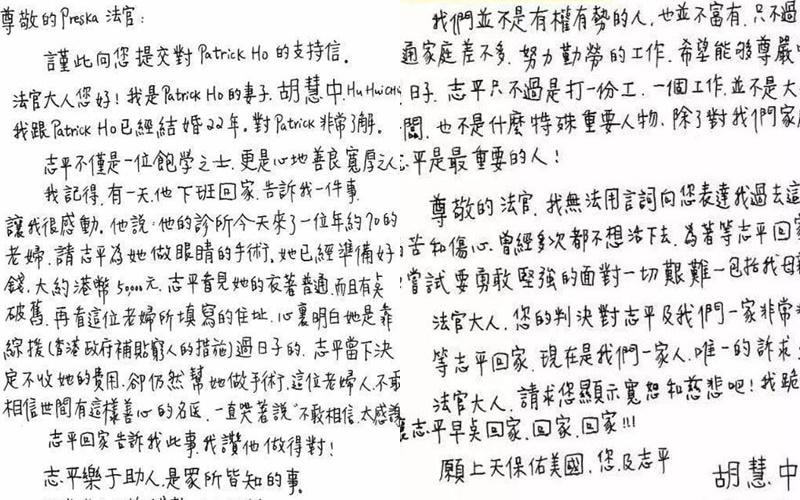 尊敬的Preska 法官:
謹此向您提交對Patrick Ho 的支持信。
法官大人您好！我是Patrick Ho 的妻子.胡慧中.Hu HuiCh
我跟Patrick Ho已經結婚22年。對Patrick 非常了解。
志平不僅是一位飽學之士.更是心地善良寬厚之人
我記得.有一天.他下班回家.告訴我一件事.
讓我很感動。他說:他的診所今天來了一位年約70的
老婦.請志平為她做眼睛的手術.她已經準備好
錢.大約港幣50,000元.志平看見她的衣著普通.而且有臭
破舊.再看這位老婦所填寫的住址.心裏明白她是靠
綜援(香港政府補貼窮人的措施)過日子的.志平當下決
定不收她的費用.卻仍然幫她做手術.這位老婦人.不敢
相信世間有這樣善心的名医.一直哭著說"不敢相信.太感謝
志平回家告訴我此事.我讚他做得對！
志平樂于助人.是眾所皆知的事.
我們並不是有權有勢的人.也並不富有.只不過
通家庭差不多.努力勤勞的工作.希望能夠尊嚴
日子.志平只不過是打一份工.一個工作.並不是大
闆.也不是什麼特殊重要人物.除了對我們家
平是最重要的人！
尊敬的法官.我無法用言詞向您表達我過去這
苦和傷心.曾經多次都不想活下去.為著等志平回家
嘗試要勇敢堅強的面對一切艱難—包括我母
法官大人.您的判決對志平及我們一家非常
等志平回家.現在是我們一家人.唯一的訴求
法官大人.請求您顯示寬恕和慈悲吧！我跪
志平早臭回家.回家.回家!!!
願上天保佑美國.您.及志平
胡慧中